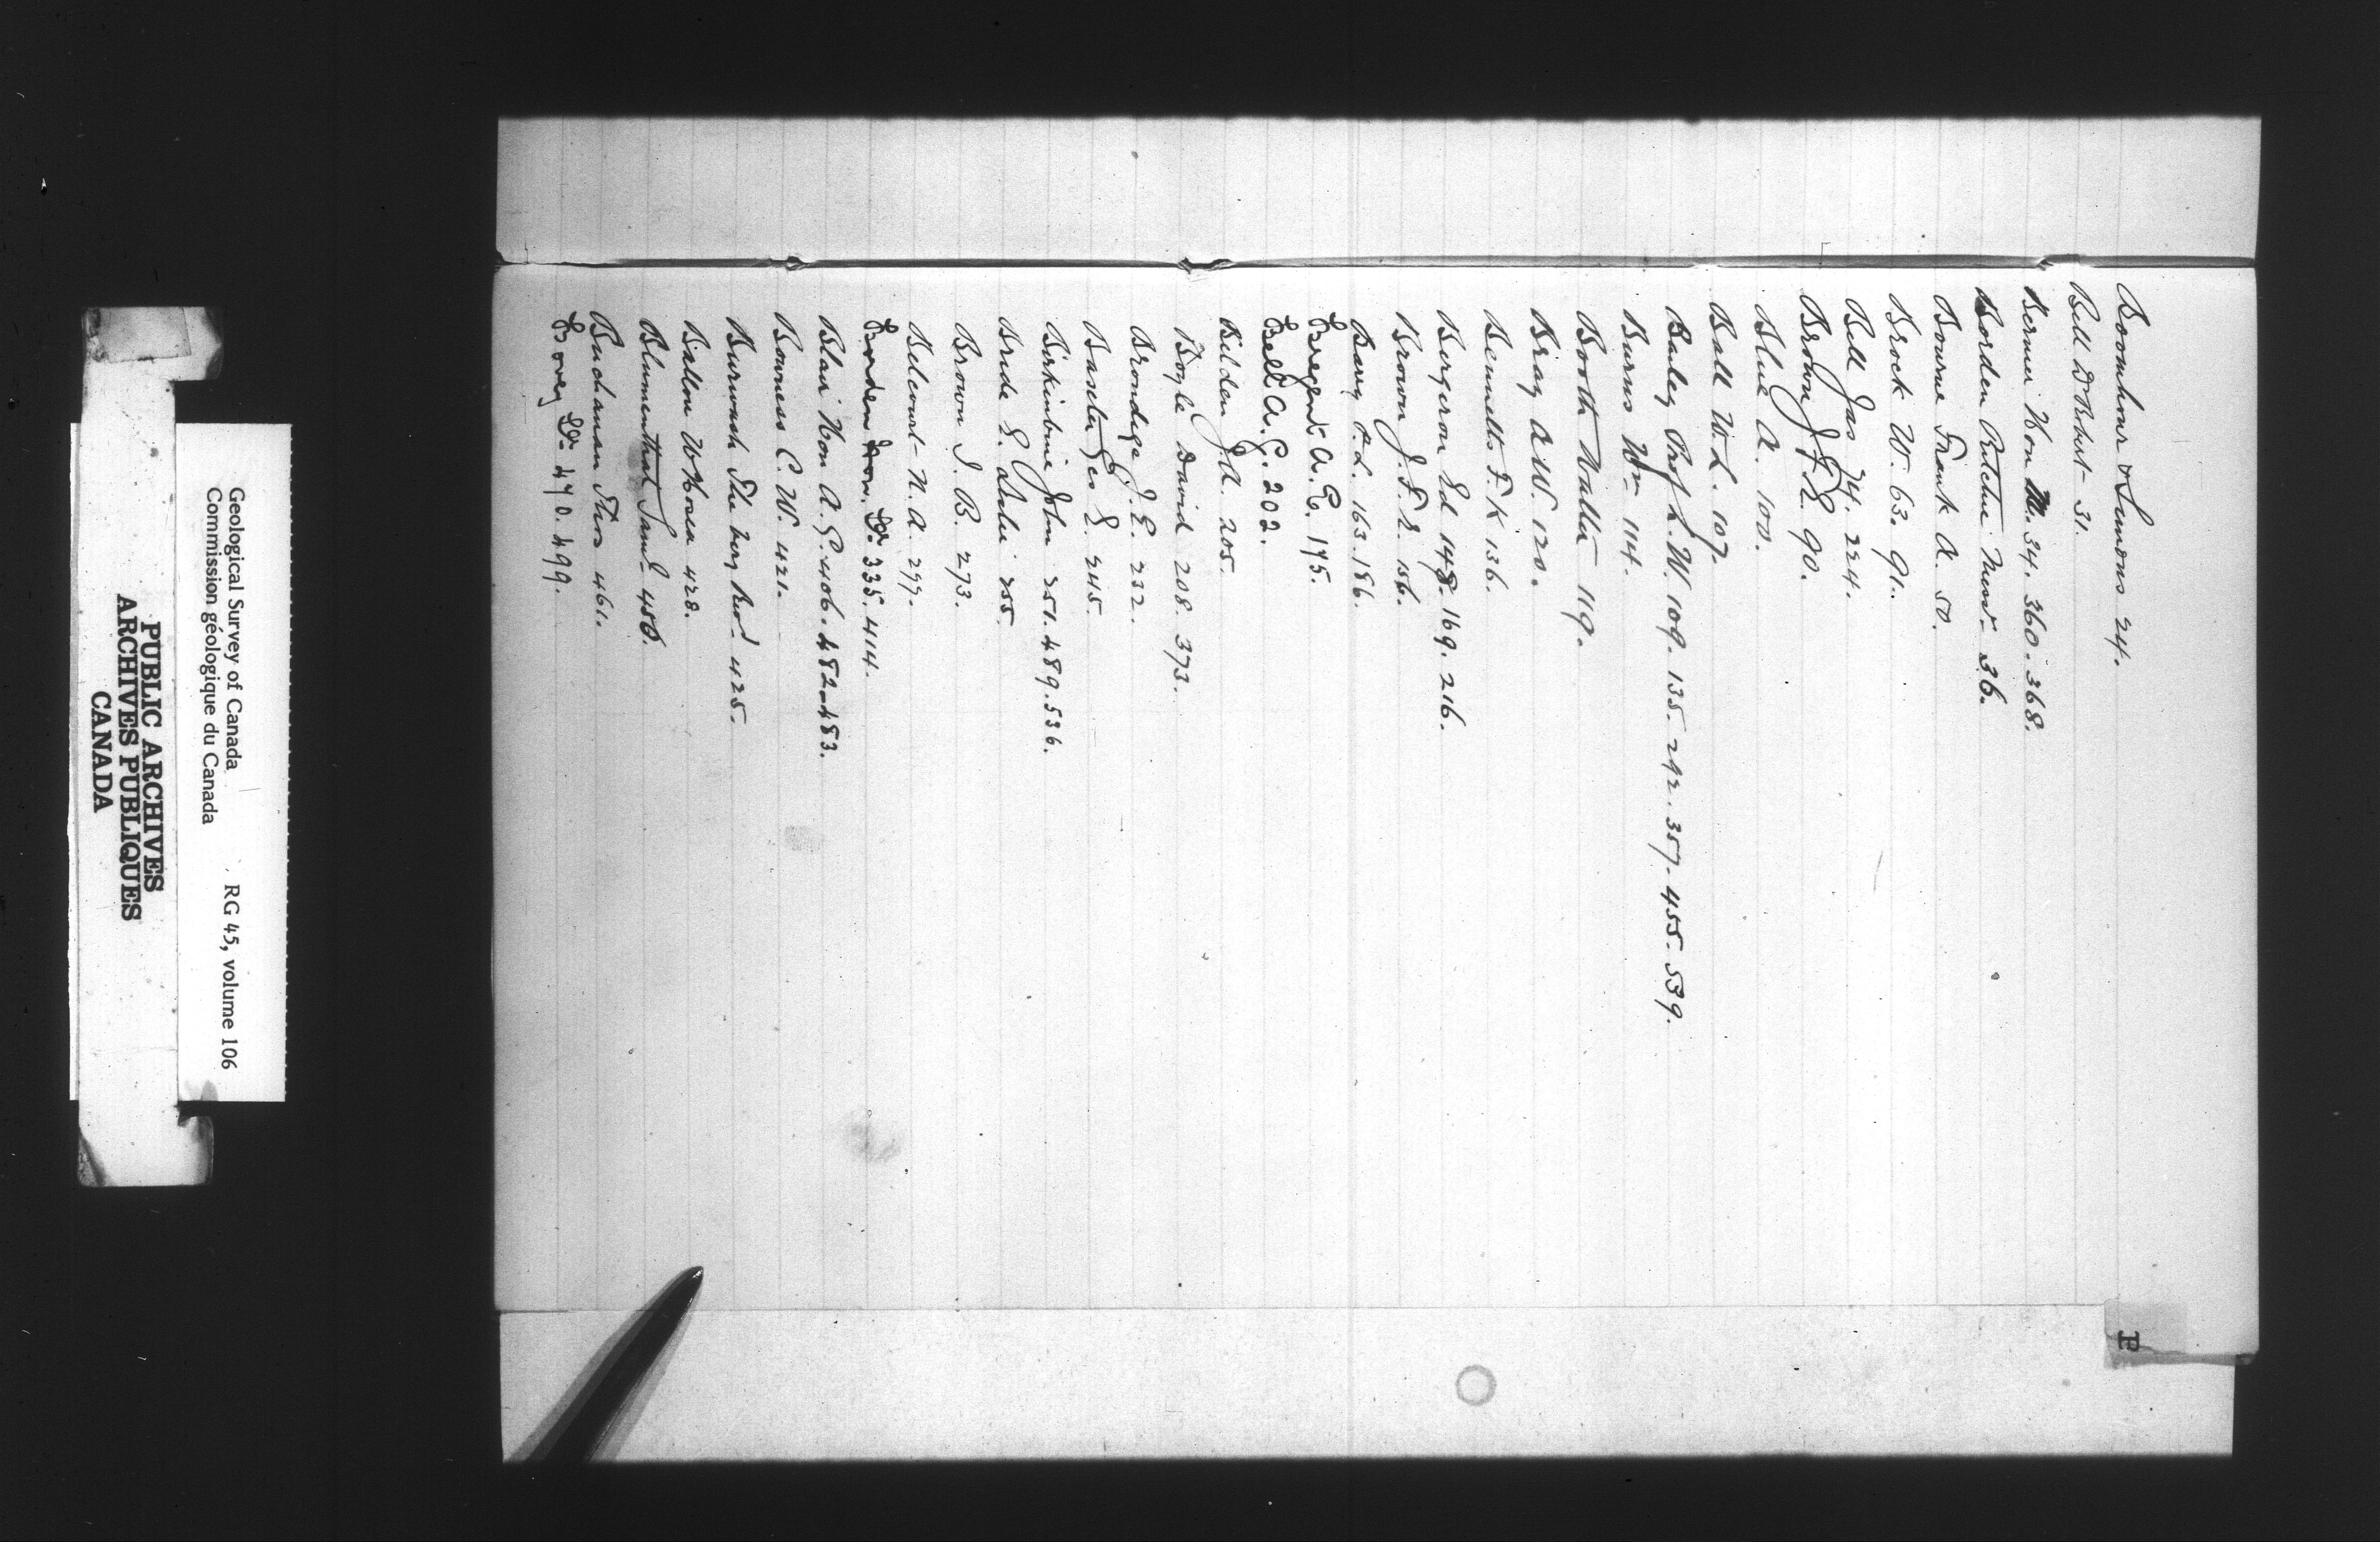 Boomhour & Simons 24.
Bell Dr Robert 31.
Bernier Hon M. 34. 360. 368.
Borden Ritchie 36.
Bourne Frank A. 50.
Brock W. 63. 91.
Bell Jas 74. 224.
Brown J. F. E. 90.
Blue A. 100.
Ball W. L. 107.
Bailey Prof L. W. 109. 135. 242. 357. 455. 539.
Burns Wm 114.
Booth Walter 119.
Bray A W. 120.
Bennetts F. K 136.
Bergeron Ed 148. 169. 216.
Brown J. F. E. 156.
Bavy P. L. 163. 186.
Bregent A. E. 175.
Bell A. G. 202.
Belden J. A. 205.
Boyle David 208. 373.
Brondige J. E. 232.
Baxter Geo E. 245.
Birkinbine John 251. 489. 536.
Bride S. Leslie 255.
Brown J. B. 273.
Belcourt N. A. 277.
Borden Hon. Dr. 335. 414.
Blair Hon A. G. 406. 482-483.
Bowness C. W. 421.
Burwash The very Revd 425.
Ballou W Hosea 428.
Blumenthal Saml 456.
Buchanan Thos 461.
Bovey Dr 470. 499.
Geological Survey of Canada RG 45, volume 106
Commission géologique du Canada
PUBLIC ARCHIVES
ARCHIVES PUBLIQUES
CANADA